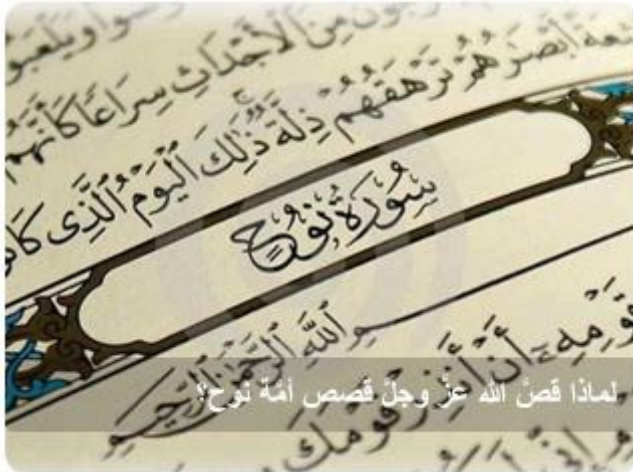 ويلعبوا
من ٱلأجداث سراعا كأنهم
أبصٰرهم ترهقهم ذلة ذٰلك ٱليوم ٱلذى
سُورَةُ نُوحٍ
ٱللَّهِ ٱلرَّحۡمَٰنِ ٱلرَّحِيمِ
أَنۡ أَنذِرۡ قَوۡمَكَ
لماذا قصَّ الله عزَّ وجلَّ قصص أمّة نوح؟